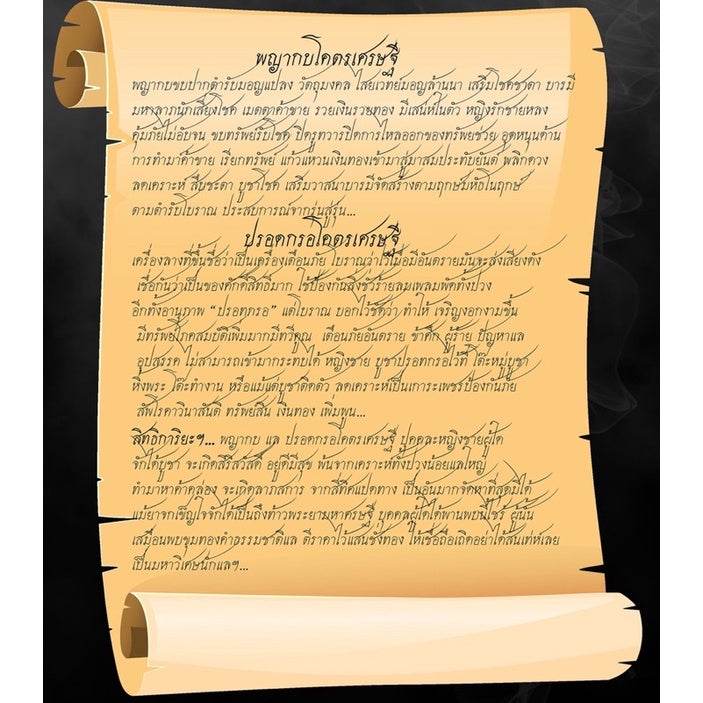 พญากบโคตรเศรษฐี
พญากบขบปากตำรับมอญแปลง วัตถุมงคล ไสยเวทย์มอญล้านนา เสริมโชคชาตา บารมี
มหาลาภนักเสี่ยงโชค เมตตาค้าขาย รวยเงินรวยทอง มีเสน่ห์ในตัว หญิงรักชายหลง
คุ้มภัยไม่อับจน ขบทรัพย์รับโชค ปิดรูทวารปิดการไหลออกของทรัพย์ช่วย อุดหนุนด้าน
การทำมาค้าขาย เรียกทรัพย์ แก้วแหวนเงินทองเข้ามาสู่มาสมประทับยันต์ พลิกดวง
ลดเคราะห์ สืบชะตา บูชาโชค เสริมวาสนาบารมีจัดสร้างตามฤกษ์มหัทโนฤกษ์
ตามตำรับโบราณ ประสบการณ์จากรุ่นสู่รุ่น...
ปรอดกรอโคตรเศรษฐี
เครื่องลางที่ขึ้นชื่อว่าเป็นเครื่องเตือนภัย โบราณว่าไว้เมื่อมีอันตรายมันจะส่งเสียงดัง
เชื่อกันว่าเป็นของศักดิ์สิทธิ์มาก ใช้ป้องกันสิ่งชั่วร้ายลมเพลมพัดทั้งปวง
อีกทั้งอานุภาพ “ปรอทกรอ” แต่โบราณ บอกไว้ชัดว่า ทำให้ เจริญงอกงามขึ้น
มีทรัพย์โภคสมบัติเพิ่มมากมีทวีคูณ เตือนภัยอันตราย ข้าศึก ผู้ร้าย ปัญหาแล
อุปสรรค ไม่สามารถเข้ามากระทบได้ หญิงชาย บูชาปรอทกรอไว้ที่ โต๊ะหมู่บูชา
หิ้งพระ โต๊ะทำงาน หรือแม้แต่บูชาติดตัว ลดเคราะห์เป็นเกราะเพชรป้องกันภัย
สัพโรคาวินาสันติ ทรัพย์สิน เงินทอง เพิ่มพูน...
สิทธิการิยะฯ... พญากบ แล ปรอดกรอโคตรเศรษฐี บุคคละหญิงชายผู้ใด
จักได้บูชา จะเกิดสิริสวัสดิ์ อยู่ดีมีสุข พ้นจากเคราะห์ทั้งปวงน้อยแลใหญ่
ทำมาหาค้าคล่อง จะเกิดลาภสการ จากสี่ทิศแปดทาง เป็นอันมากจัดหาที่สุดมิได้
แม้ยาจกเข็ญใจจักได้เป็นถึงท้าวพระยามหาเศรษฐี บุคคลผู้ใดได้พานพบนี้ไซร้ ผู้นั้น
เสมือนพบขุมทองคำธรรมชาติแล ตีราคาไว้แสนชั่งทอง ให้เชื่อถือเถิดอย่าได้สนเท่ห์เลย
เป็นมหาวิเศษนักแลฯ...